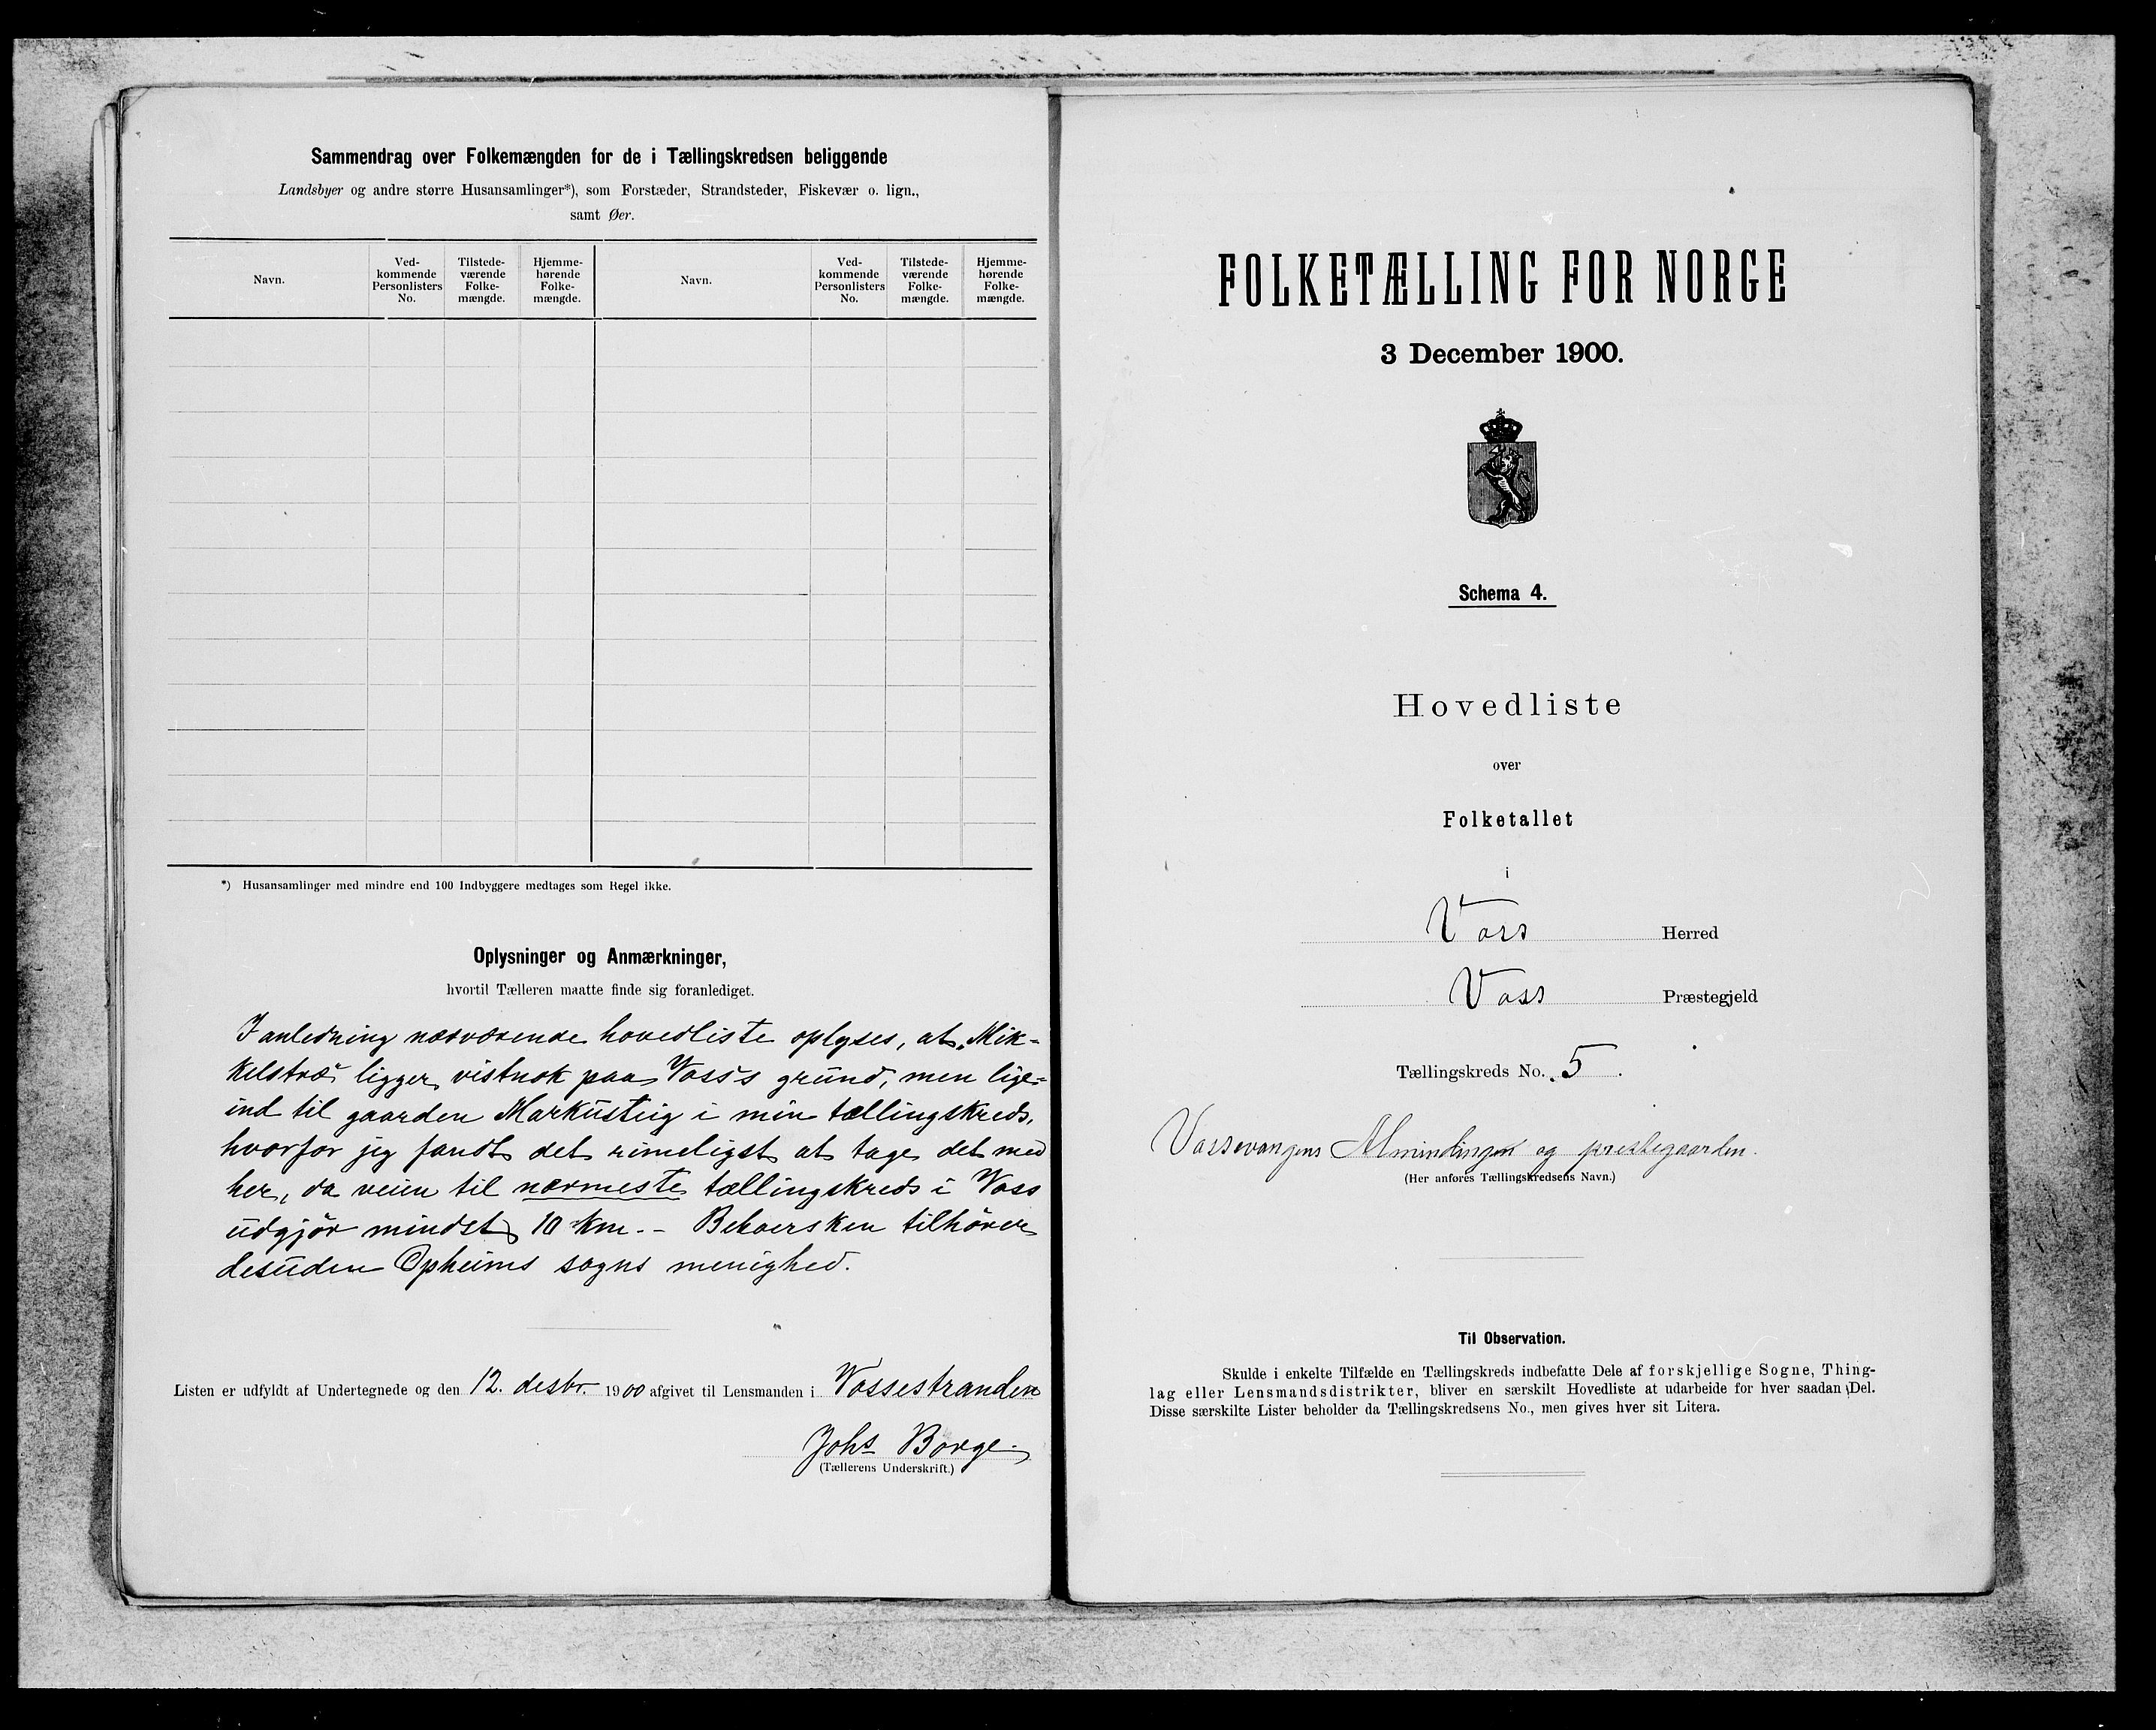 Sammendrag over Folkemængden for de i Tællingskredsen beliggende
Landsbyer og andre større Husansamlinger*), som Forstæder, Strandsteder, Fiskevær o. lign.,
samt Øer.
Navn.
Ved-
kommende
Personlisters
No.
Tilstede-
værende
Folke-
mængde.
Hjemme-
hørende
Folke-
mængde.
Navn.
Ved-
kommende
Personlisters
No.
Tilstede-
værende
Folke-
mængde.
Hjemme-
hørende
Folke-
mængde.
*) Husansamlinger med mindre end 100 Indbyggere medtages som Regel ikke.
Oplysninger og Anmærkninger,
hvortil Tælleren maatte finde sig foranlediget.
I anledning nærværende hovedliste oplyses, at „Mik-
kelstræ" ligger vistnok paa Voss's grund, men lige-
ind til gaarden Markusteig i min tællingskreds,
hvorfor jeg fandt det rimeligst at tage det med
her, da veien til nærmeste tællingskreds i Voss
udgjør mindst 10 km. - tilhører
desuden Opheims sogns menighed.
Listen er udfyldt af Undertegnede og den 12. desbr. 1900 afgivet til Lensmanden i Vossestranden
Johs Borge.
(Tællerens Underskrift.)
FOLKETÆLLING FOR NORGE
3 December 1900.
Schema 4.
Hovedliste
over
Folketallet
i
Voss Herred
Voss Præstegjeld
Tællingskreds No. 5.
Vossevangens Almindingen og prestegaarden.
(Her anføres Tællingskredsens Navn.)
Til Observation.
Skulde i enkelte Tilfælde en Tællingskreds indbefatte Dele af forskjellige Sogne, Thing-
lag eller Lensmandsdistrikter, bliver en særskilt Hovedliste at udarbeide for hver saadan Del.
Disse særskilte Lister beholder da Tællingskredsens No., men gives hver sit Litera.